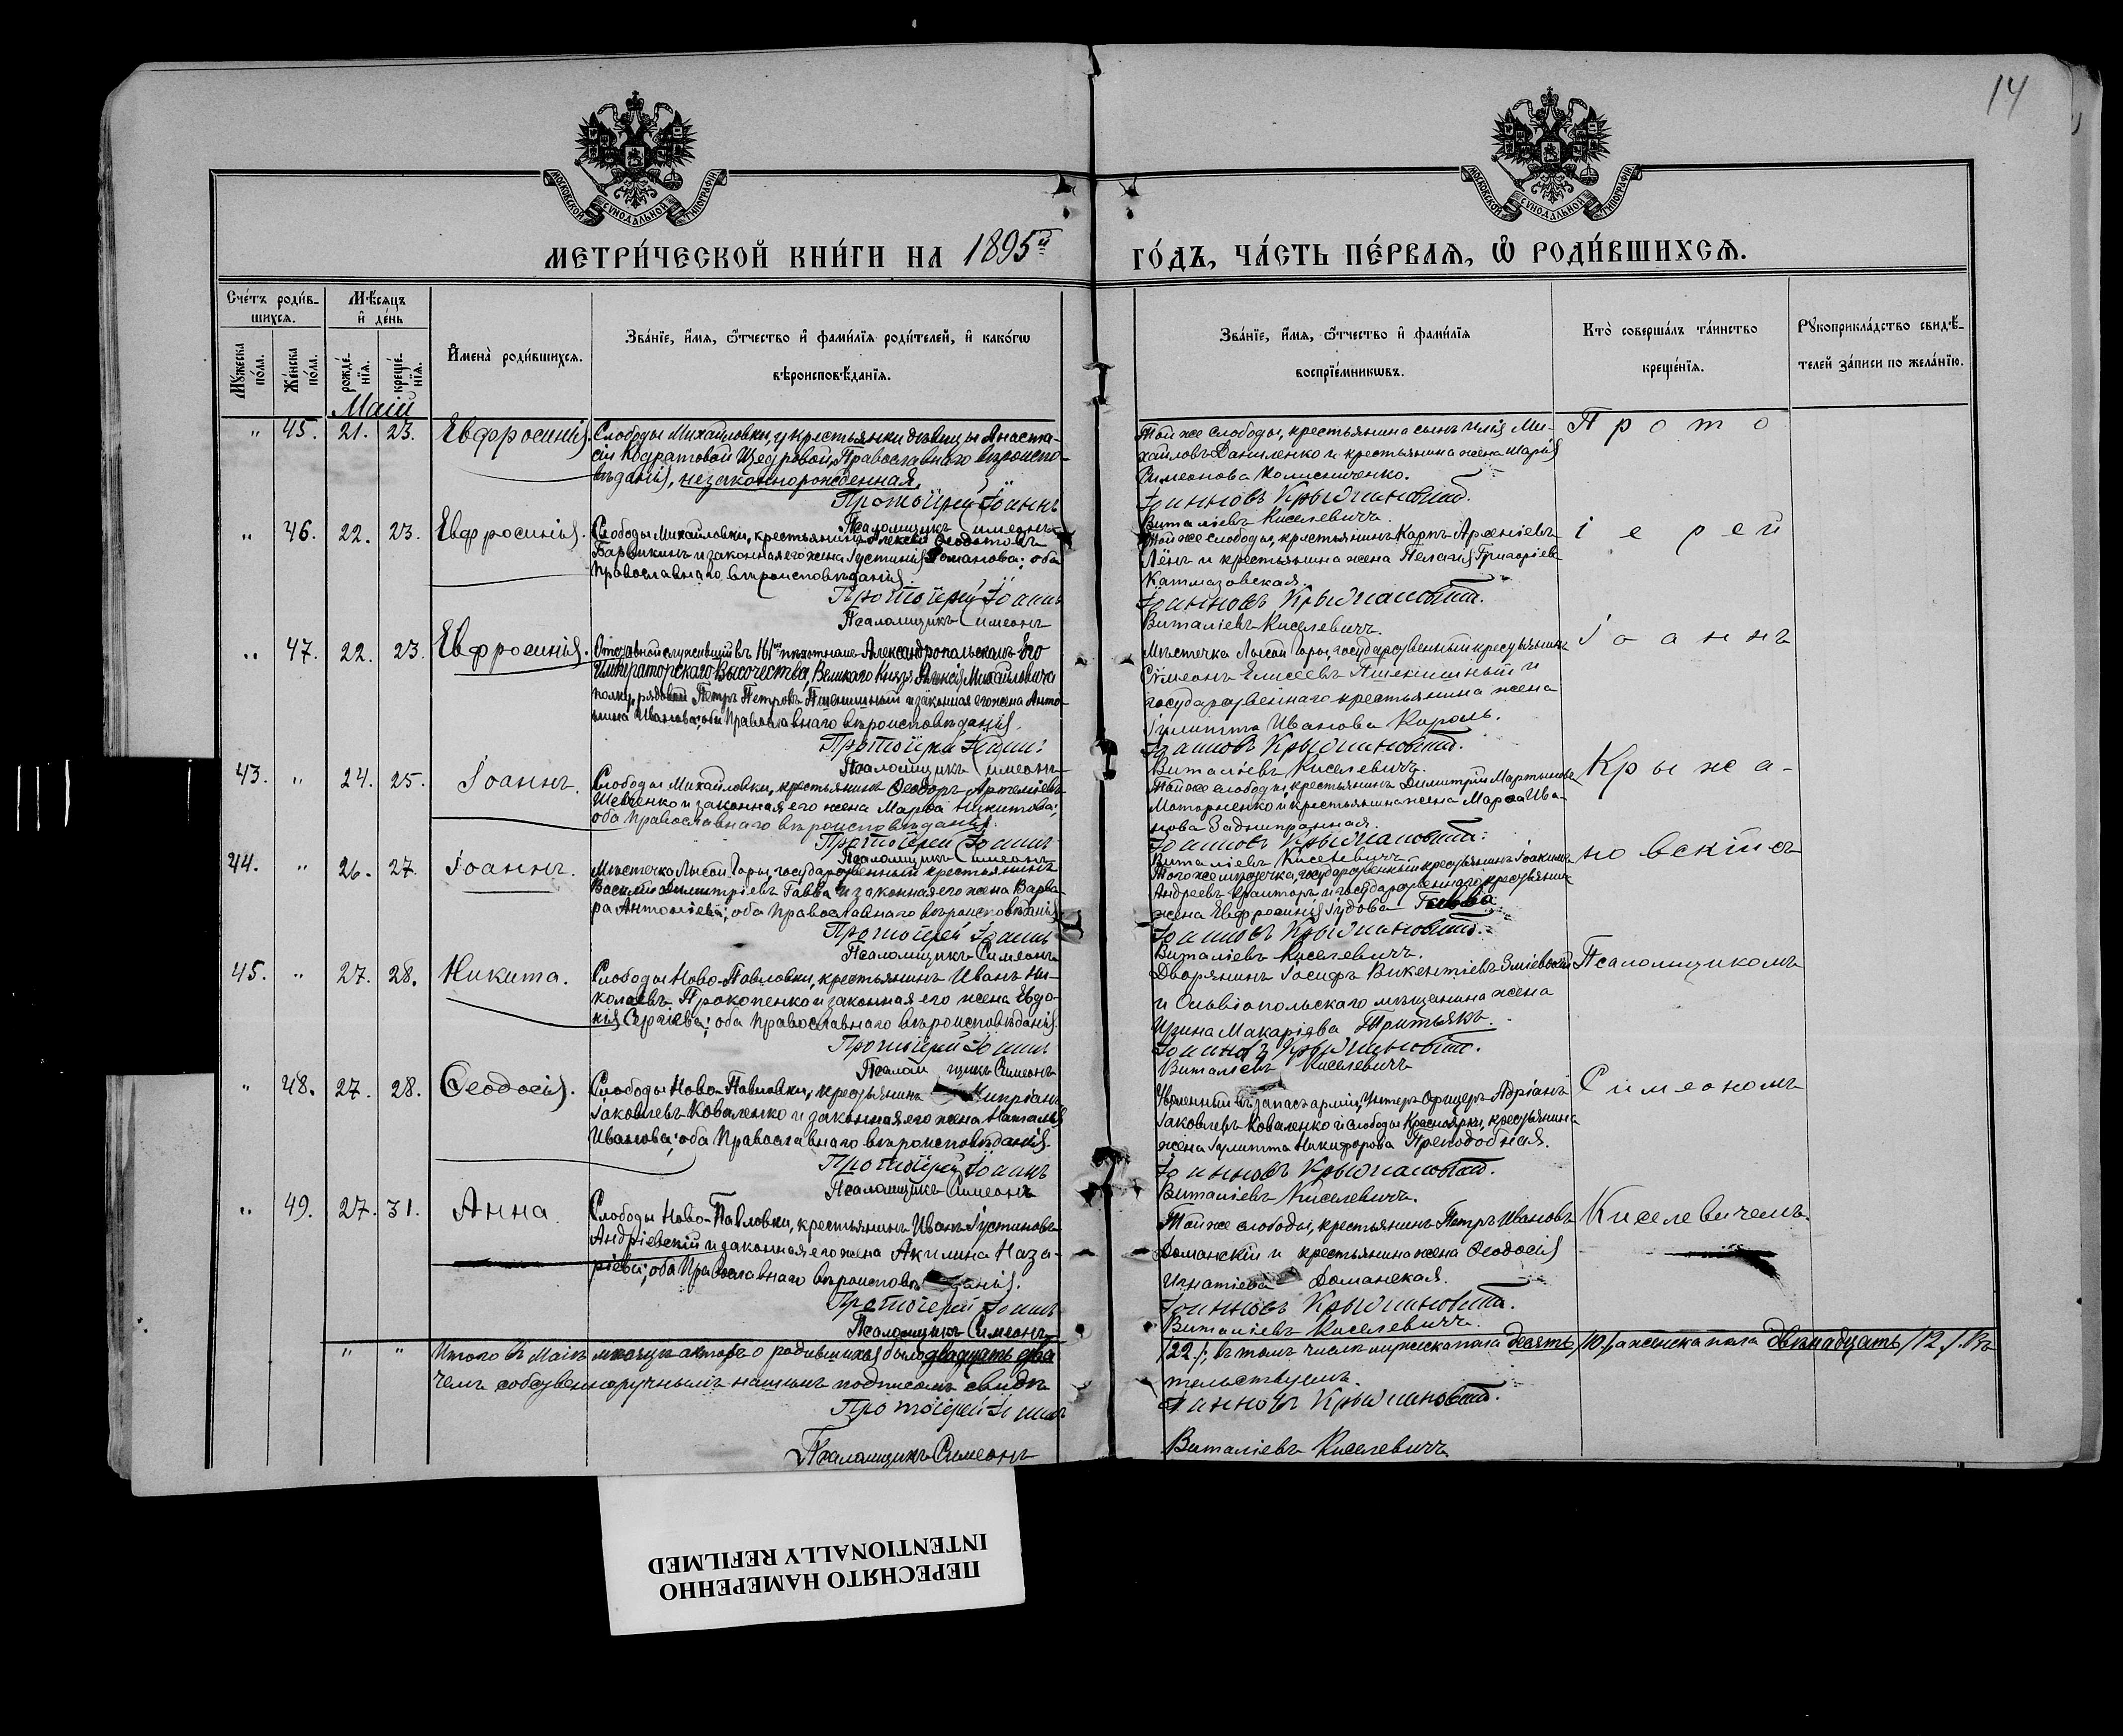 14
МОСКОВСКОЙ СѴНОДАЛЬНОЙ ТИПОГРАФІИ
МОСКОВСКОЙ СѴНОДАЛЬНОЙ ТИПОГРАФІИ
МЕТРИ́ЧЕСКОЙ КНИ́ГИ НА 1895й ГО́ДЪ, ЧА́СТЬ ПЕ́РВАЯ, Ѡ҆ РОДИ́ВШИХСЯ.
Сче́тъ роди́в-
шихся.
Мѣ́сяцъ
и҆ де́нь
Мꙋ́жеска по́ла.
Же́нска по́ла.
рожде́-нїя.
креще́-нїя.
И҆мена̀ роди́вшихся.
Зва́нїе, и҆́мя, ѻ҆́тчество и҆ фами́лїя роди́телей, и҆ како́гѡ
вѣроисповѣ́данїя.
Зва́нїе, и҆́мя, ѻ҆́тчество и҆ фами́лїя
воспрїе́мникѡвъ.
Кто̀ соверша́лъ та́инство
креще́нїя.
Рꙋкоприкла́дство свидѣ́-
телей за́писи по жела́нїю.
Маій
" 45. 21. 23. Евфросинія.
Слободы Михайловки, у крестьянки дѣвицы Анаста-
сіи Кодратовой Щедровой, Православнаго вѣроиспо-
вѣданія, незаконнорожденная.
Протоіерей Іоаннъ
Псаломщикъ Симеонъ
Той же слободы, крестьянина сынъ Илія Ми-
хайловъ Даниленко и крестьянина жена Марія
Симеонова Колисниченко.
Іоанновъ Крыжановскій.
Виталіевъ Киселевичъ.
Прото
" 46. 22. 23. Евфросинія.
Слободы Михайловки, крестьянинъ Алексій Ѳеодотовъ
Барвикинъ и законная его жена Іустинія Романова; оба
Православнаго вѣроисповѣданія.
Протоіерей Іоаннъ
Псаломщикъ Симеонъ
Той же слободы, крестьянинъ Карпъ Арсеніевъ
Лёнъ и крестьянина жена Пелагія Григоріева
Катмазовская.
Іоанновъ Крыжановскій.
Виталіевъ Киселевичъ.
іерей
" 47. 22. 23. Евфросинія.
Отставной служившій въ 161мъ пѣхотномъ Александропольскомъ Его
Императорскаго Высочества, Великаго Князя Алексія Михайловича
полку, рядовой Петръ Петровъ Пшеничный и законная его жена Анто-
нина Иванова; оба Православнаго вѣроисповѣданія.
Протоіерей Іоаннъ
Псаломщикъ Симеонъ
Мѣстечка Лысой Горы, государственный крестьянинъ
Симеонъ Елисеевъ Пшеничный и
государственнаго крестьянина жена
Іулитта Иванова Король.
Іоанновъ Крыжановскій.
Виталіевъ Киселевичъ.
Іоаннъ
43. " 24. 25. Іоаннъ.
Слободы Михайловки, крестьянинъ Ѳеодоръ Артеміевъ
Шевченко и законная его жена Марѳа Никитова;
оба Православнаго вѣроисповѣданія.
Протоіерей Іоаннъ
Псаломщикъ Симеонъ
Той же слободы, крестьянинъ Димитрій Мартыновъ
Моторненко и крестьянина жена Марѳа Ива-
нова Заднипряная.
Іоанновъ Крыжановскій.
Виталіевъ Киселевичъ.
Крыжа-
44. " 26. 27. Іоаннъ.
Мѣстечка Лысой Горы, государственный крестьянинъ
Василій Димитріевъ Гавва и законная его жена Варва-
ра Антоніева; оба Православнаго вѣроисповѣданія
Протоіерей Іоаннъ
Псаломщикъ Симеонъ
Того же мѣстечка, государственный крестьянинъ Іоакимъ
Андреевъ и государственнаго крестьянина
жена Евфросинія Іудова Гавва.
Іоанновъ Крыжановскій.
Виталіевъ Киселевичъ.
новскій съ
45. " 27. 28. Никита.
Слободы Ново-Павловки, крестьянинъ Иванъ Ни-
колаевъ Прокопенко и законная его жена Евдо-
кія Сергіева; оба Православнаго вѣроисповѣданія.
Протоіерей Іоаннъ
Псаломщикъ Симеонъ
Дворянинъ Іосифъ Викентіевъ Зміевскій
и Ольвіопольскаго мѣщанина жена
Ирина Макаріева Притьякъ.
Іоанновъ Крыжановскій.
Виталіевъ Киселевичъ
Псаломщикомъ
" 48. 27. 28. Ѳеодосія.
Слободы Ново-Павловки, крестьянинъ Кипріанъ
Іаковлевъ Коваленко и законная его жена Наталія
Иванова; оба Православнаго вѣроисповѣданія.
Протоіерей Іоаннъ
Псаломщикъ Симеонъ
Уволенный въ запасъ арміи, Унтеръ-Офицеръ Адріанъ
Іаковлевъ Коваленко и слободы Красноярки, крестьянина
жена Іулитта Никифорова Преподобная.
Іоанновъ Крыжановскій.
Виталіевъ Киселевичъ.
Симеономъ
" 49. 27. 31. Анна.
Слободы Ново-Павловки, крестьянинъ Иванъ Іустиновъ
Андріевскій и законная его жена Акилина Наза-
ріева; оба Православнаго вѣроисповѣданія.
Протоіерей Іоаннъ
Псаломщикъ Симеонъ
Той же слободы, крестьянинъ Петръ Ивановъ
Доманскій и крестьянина жена Ѳеодосія
Игнатіева Доманская.
Іоанновъ Крыжановскій.
Виталіевъ Киселевичъ.
Киселевичемъ.
" " Итого въ Маіѣ мѣсяцѣ актовъ о родившихся было двадцать два /22/; въ томъ числѣ мужеска пола десять /10/, а женска пола двѣнадцать /12/. Въ
чемъ собственноручнымъ нашимъ подписомъ свидѣтельствуемъ.
Протоіерей Іоаннъ Іоанновъ Крыжановскій.
Псаломщикъ Симеонъ Виталіевъ Киселевичъ
ПЕРЕСНЯТО НАМЕРЕННО
INTENTIONALLY REFILMED